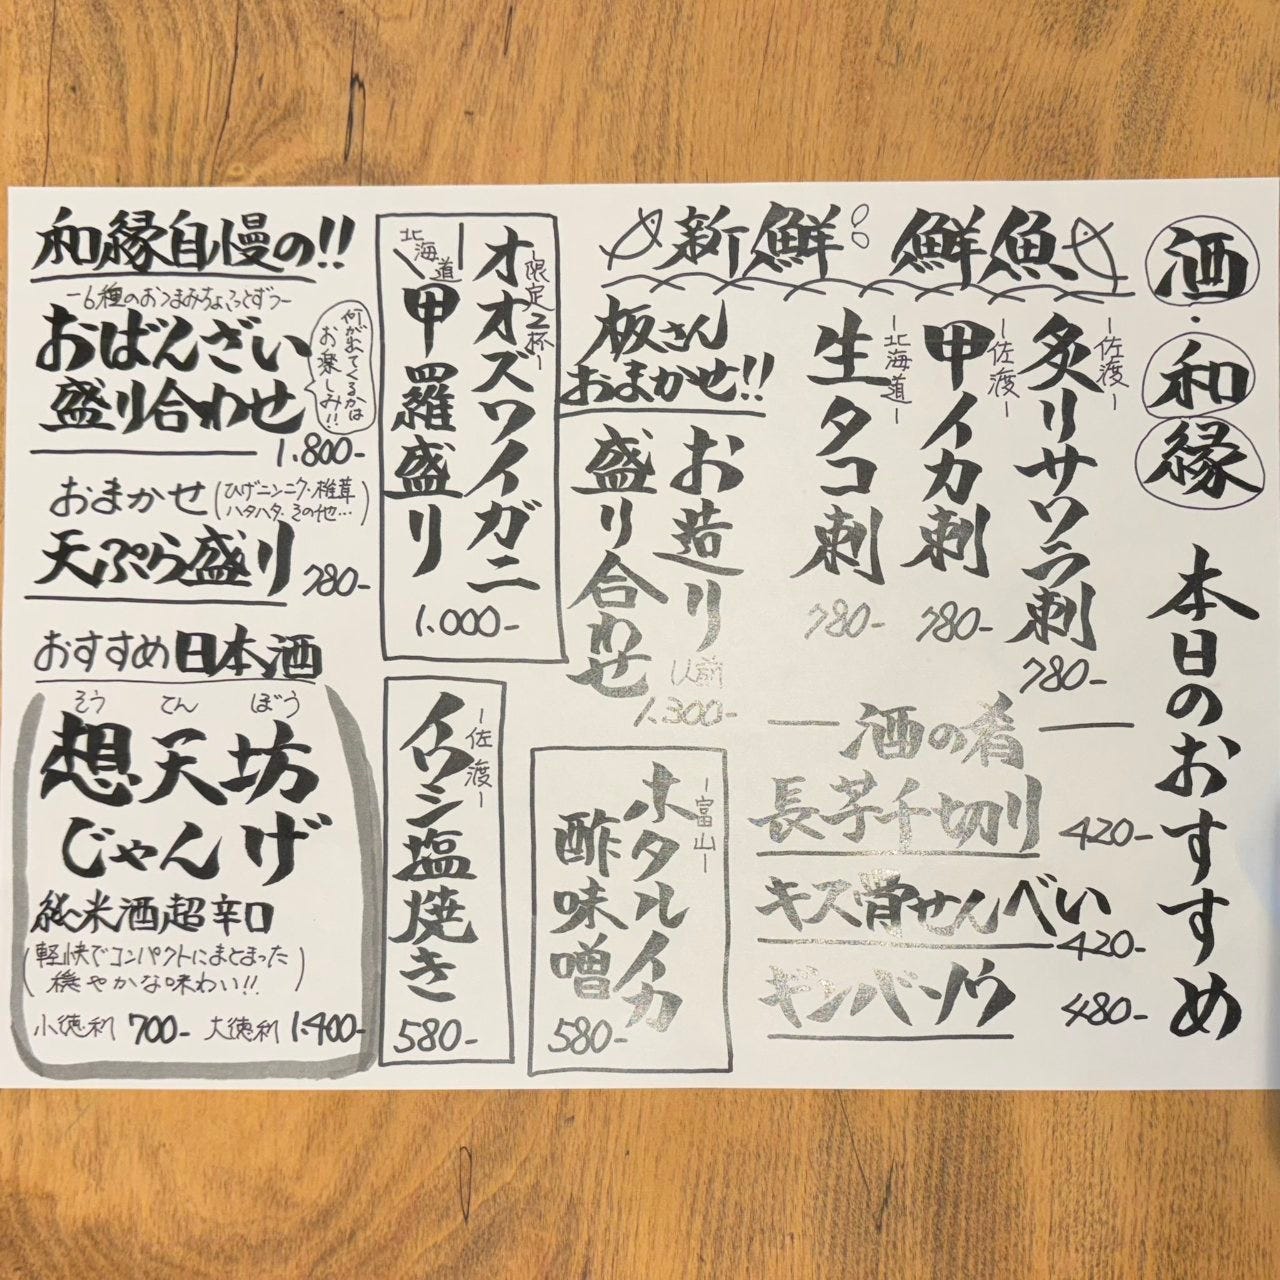 酒・和縁 本日のおすすめ
新鮮 鮮魚
炙りサワラ刺
-佐渡-
780-
甲イカ刺
-佐渡-
780-
生タコ刺
-北海道-
780-
板さん
おまかせ!!
お造り
盛り合わせ
1人前
1.300-
酒の肴
長芋千切り 420-
キス骨せんべい
420-
ギンバソウ 480-
オオズワイガニ
-限定2杯-
北海道
甲羅盛り
1.000-
ホタルイカ
-富山-
酢味噌
580-
イワシ塩焼き
-佐渡-
580-
和縁自慢の!!
-6種のおつまみちょこっとずつ-
おばんざい
盛り合わせ
何がでてくるかは
お楽しみ!!
1.800-
おまかせ
(ひげニンニク・椎茸
ハタハタ・その他…)
天ぷら盛り 780-
おすすめ日本酒
そう てん ぼう
想天坊
じゃんげ
純米酒超辛口
(軽快でコンパクトにまとまった
穏やかな味わい!!)
小徳利 700- 大徳利 1.400-